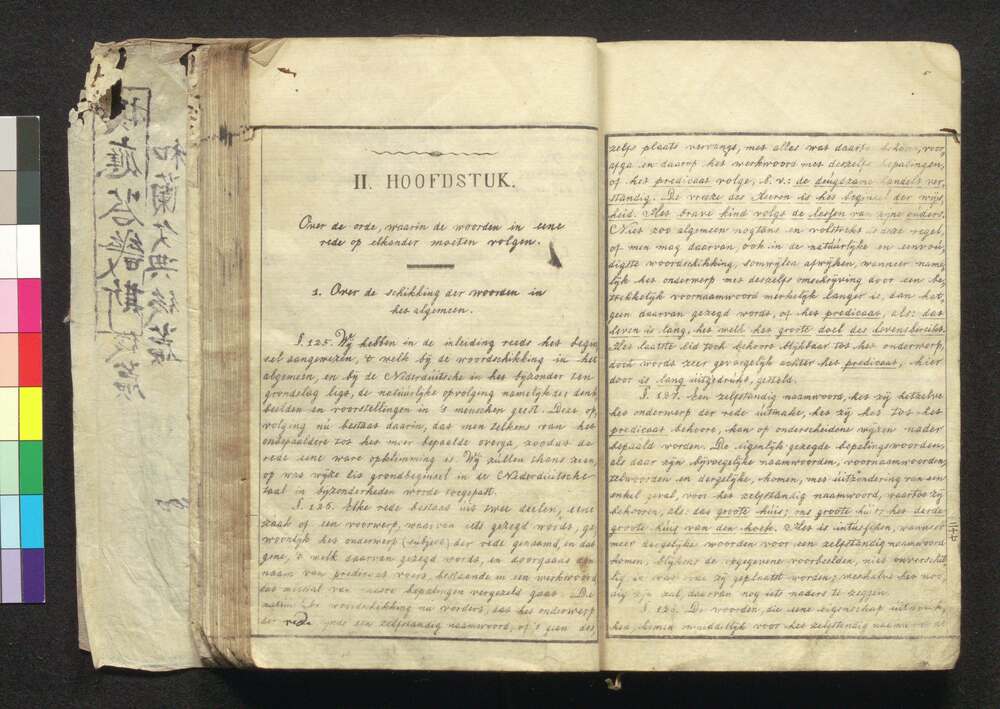 II. HOOFDSTUK.
Over de orde, waarin de woorden in eene
rede op elkander moeten volgen.
1. Over de schikking der woorden in
het algemeen.
§. 125. Wij hebben in de inleiding reeds het begin
sel aangewezen, 't welk bij de woordschikking in het
algemeen, en bij de Nederduitsche in het bijzonder ten
grondslag ligt, de natuurlijke opvolging namelijk der denk
beelden en voorstellingen in 's menschen geest. Deze op
volging nu bestaat daarin, dat men telkens van het
onbepaaldere tot het meer bepaalde overga, zoodat de
rede eene ware opklimming is. Wij zullen thans zien,
op wat wijze dit grondbeginsel in de Nederduitsche
taal in bijzonderheden worde toegepast.
§. 126. Elke rede bestaat uit twee deelen, eene
zaak of een voorwerp, waarvan iets gezegd wordt, ge
woonlijk het onderwerp (subject) der rede genaamd, en dat
gene, 't welk daarvan gezegd wordt, en doorgaans den
naam van predicaat voert, bestaande in een werkwoord
dat meestal van nadere bepalingen vergezeld gaat. De
natuurlijke woordschikking nu vordert, dat het onderwerp
der rede zynde een zelfstandig naamwoord, of 't geen des
zelfs plaats vervangt, met alles wat daartoe behoort, voor
afga en daarop het werkwoord met deszelfs bepalingen,
of het predicaat volge, b. v.: de deugdzame handelt ver
standig. De vreeze des Heeren is het beginsel der wijs
heid. Het brave kind volgt de lessen van zijne ouders.
Niet zoo algemeen nogtans en volstrekt is deze regel,
of men mag daarvan, ook in de natuurlijke en eenvou
digste woordschikking, somwijlen afwijken, wanneer name
lijk het onderwerp met deszelfs omschrijving door een be
trekkelijk voornaamwoord merkelijk langer is, dan het
geen daarvan gezegd wordt, of het predicaat, als: dat
leven is lang, het welk het groote doel des levens bereikt.
Het laatste lid toch behoort blijkbaar tot het onderwerp,
doch wordt zeer gevoegelijk achter het predicaat, hier
door is lang uitgedrukt, gesteld.
§. 127. Een zelfstandig naamwoord, het zij hetzelve
het onderwerp der rede uitmake, het zij het tot het
predicaat behoore, kan op onderscheidene wijzen nader
bepaald worden. De eigenlijk gezegde bepalingswoorden,
als daar zijn bijvoegelijke naamwoorden, voornaamwoorden,
telwoorden en dergelijke, komen, met uitzondering van een
enkel geval, voor het zelfstandig naamwoord, waartoe zij
behooren, als: das groote huis; ons groote huis; het derde
groote huis van den hoek. Het is intusschen, wanneer
meer dergelijke woorden voor een zelfstandig naamwoord
komen, blijkens de opgegevene voorbeelden, niet onverschil
lig in wat orde zij geplaatst worden; weshalve het noo
dig zijn zal, daarvan nog iets naders te zeggen.
§. 128. De woorden, die eene eigenschap uitdrukken,
komen onmiddelijk voor het zelfstandig naamwoord
和蘭文典